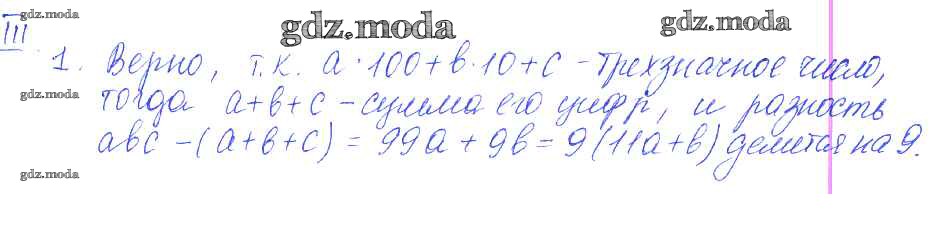 gdz.moda
gdz.moda
gdz.moda
III
1. Верно, т.к. a·100+b·10+c – трехзначное число,
gdz.moda
тогда a+b+c – сумма его цифр, и разность
abc – (a+b+c) = 99a + 9b = 9(11a+b) делится на 9.
gdz.moda